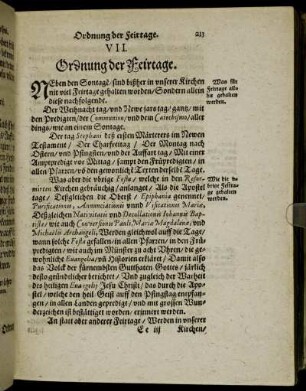 Ordnung der Feirtage. 213
VII.
Ordnung der Feirtage.
Neben den Sontagē/ sind bißher in unserer Kirchen
nit viel Feirtage gehalten worden/ Sondern allein
diese nachfolgende.
Was für
Feirtage allie
gehalten
werden.
Der Weihnacht tag/ und Newe jars tag/ gantz/ mit
den Predigten/ der Communion/ und dem Catechismo/ aller
dinge/ wie an einem Sontage.
Der tag Stephani des ersten Märterers im Newen
Testament/ Der Charfreitag/ Der Montag nach
Ostern/ und Pfingsten/ und der Auffart tag/ Mit einer
Amptpredigt vor Mittag/ sampt den Frůpredigten/ in
allen Pfarren/ võ den gewonlichē Texten derselbē Tage.
Was aber die vbrige Festa/ welche in den Reformirten
Kirchen gebräuchig/ anlanget/ Als die Apostel
tage/ Deßgleichen die Oberst/ Epiphania genennet/
Purificationis, Annunciationis unnd Visitationis Mariæ,
Deßgleichen Nativitatis und Decollationis Johannis Baptistæ/
wie auch Conversionis Pauli, Mariæ Magdalenæ/ und
Michaëlis Archangeli, Werden gleichwol auff die Tage/
wann solche Festa gefallen/ in allen Pfarren/ in den Frů
predigten/ wie auch im Münster zu acht Uhren/ die gewohnliche
Euangelia/ uñ Historien erklärt/ Damit also
das Volck der fürnembsten Gutthaten Gottes/ järlich
desto gründtlicher berichtet/ Und zugleich der Warheit
des heyligen Euangelij Jesu Christi/ das durch die Apostel/
welche den heil. Geist auff den Pfingstag entpfangen/
in allen Landen geprediget/ und mit grossen Wunderzeichen
ist bestättiget worden/ erinnert werden.
Wie die vbrige
Feirtage
gehalten
werden.
An statt aber anderer Feirtage/ Werden in unserer
Ee iij Kirchen/